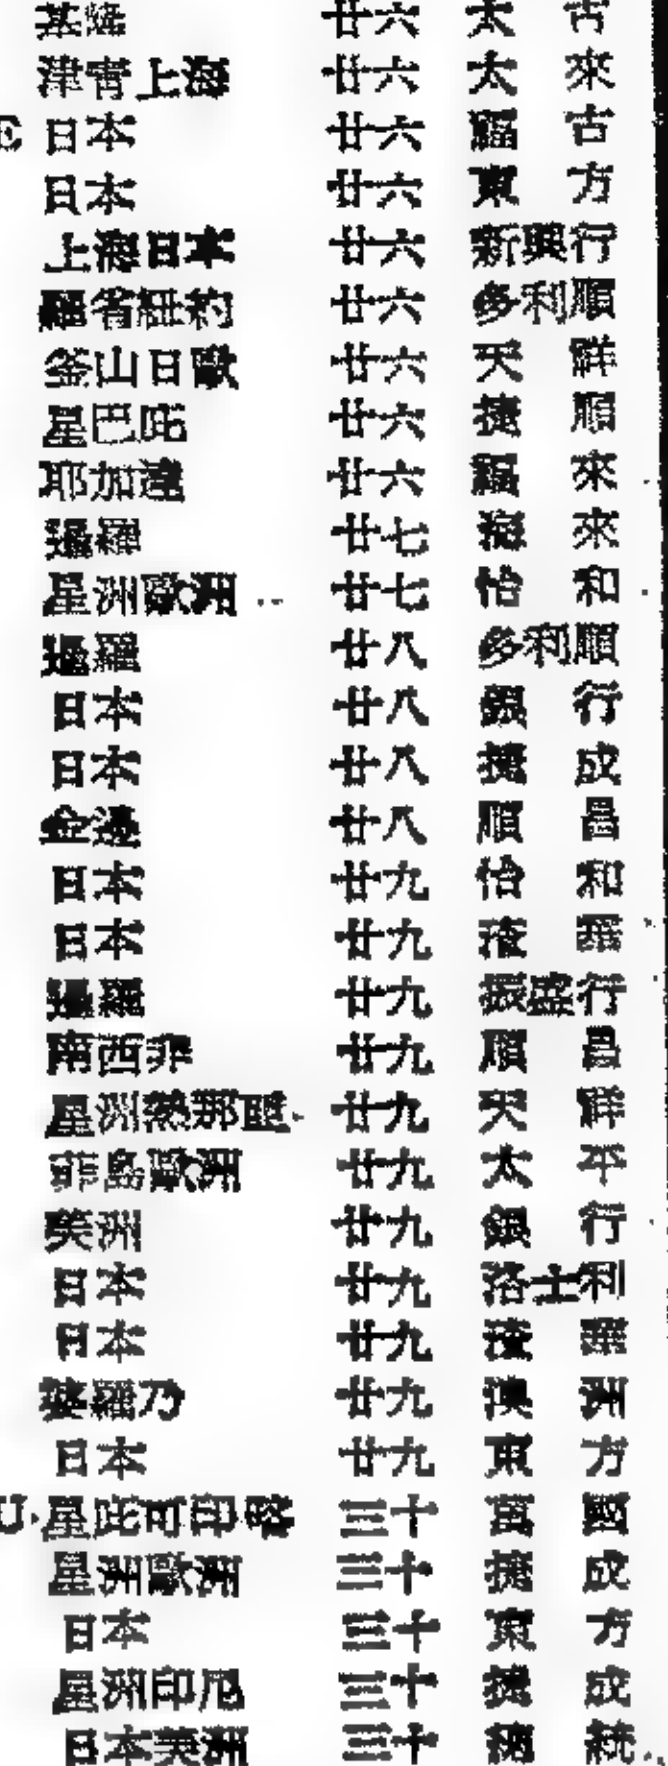 基隆 廿六 太古
津 上海 廿六 太來
日本 廿六 福古
日本 廿六 東方
上海日本 廿六 新興行
羅省紐約 廿六 多利順
釜山日歐 廿六 天祥
星巴 廿六 捷順
耶加達 廿六 福來
暹羅 廿七 來
星洲歐洲 廿七 怡和
暹羅 廿八 多利順
日本 廿八 銀行
日本 廿八 捷成
金邊 廿八 順昌
日本 廿九 怡和
日本 廿九
暹羅 廿九 振盛行
南西非 廿九 順昌
星洲 那 廿九 天祥
菲島歐洲 廿九 太平
美洲 廿九 銀行
日本 廿九 洛士利
日本 廿九
婆羅乃 廿九 澳洲
日本 廿九 東方
星 印 三十 萬國
星洲歐洲 三十 捷成
日本 三十 東方
星洲印尼 三十 捷成
日本美洲 三十 總統